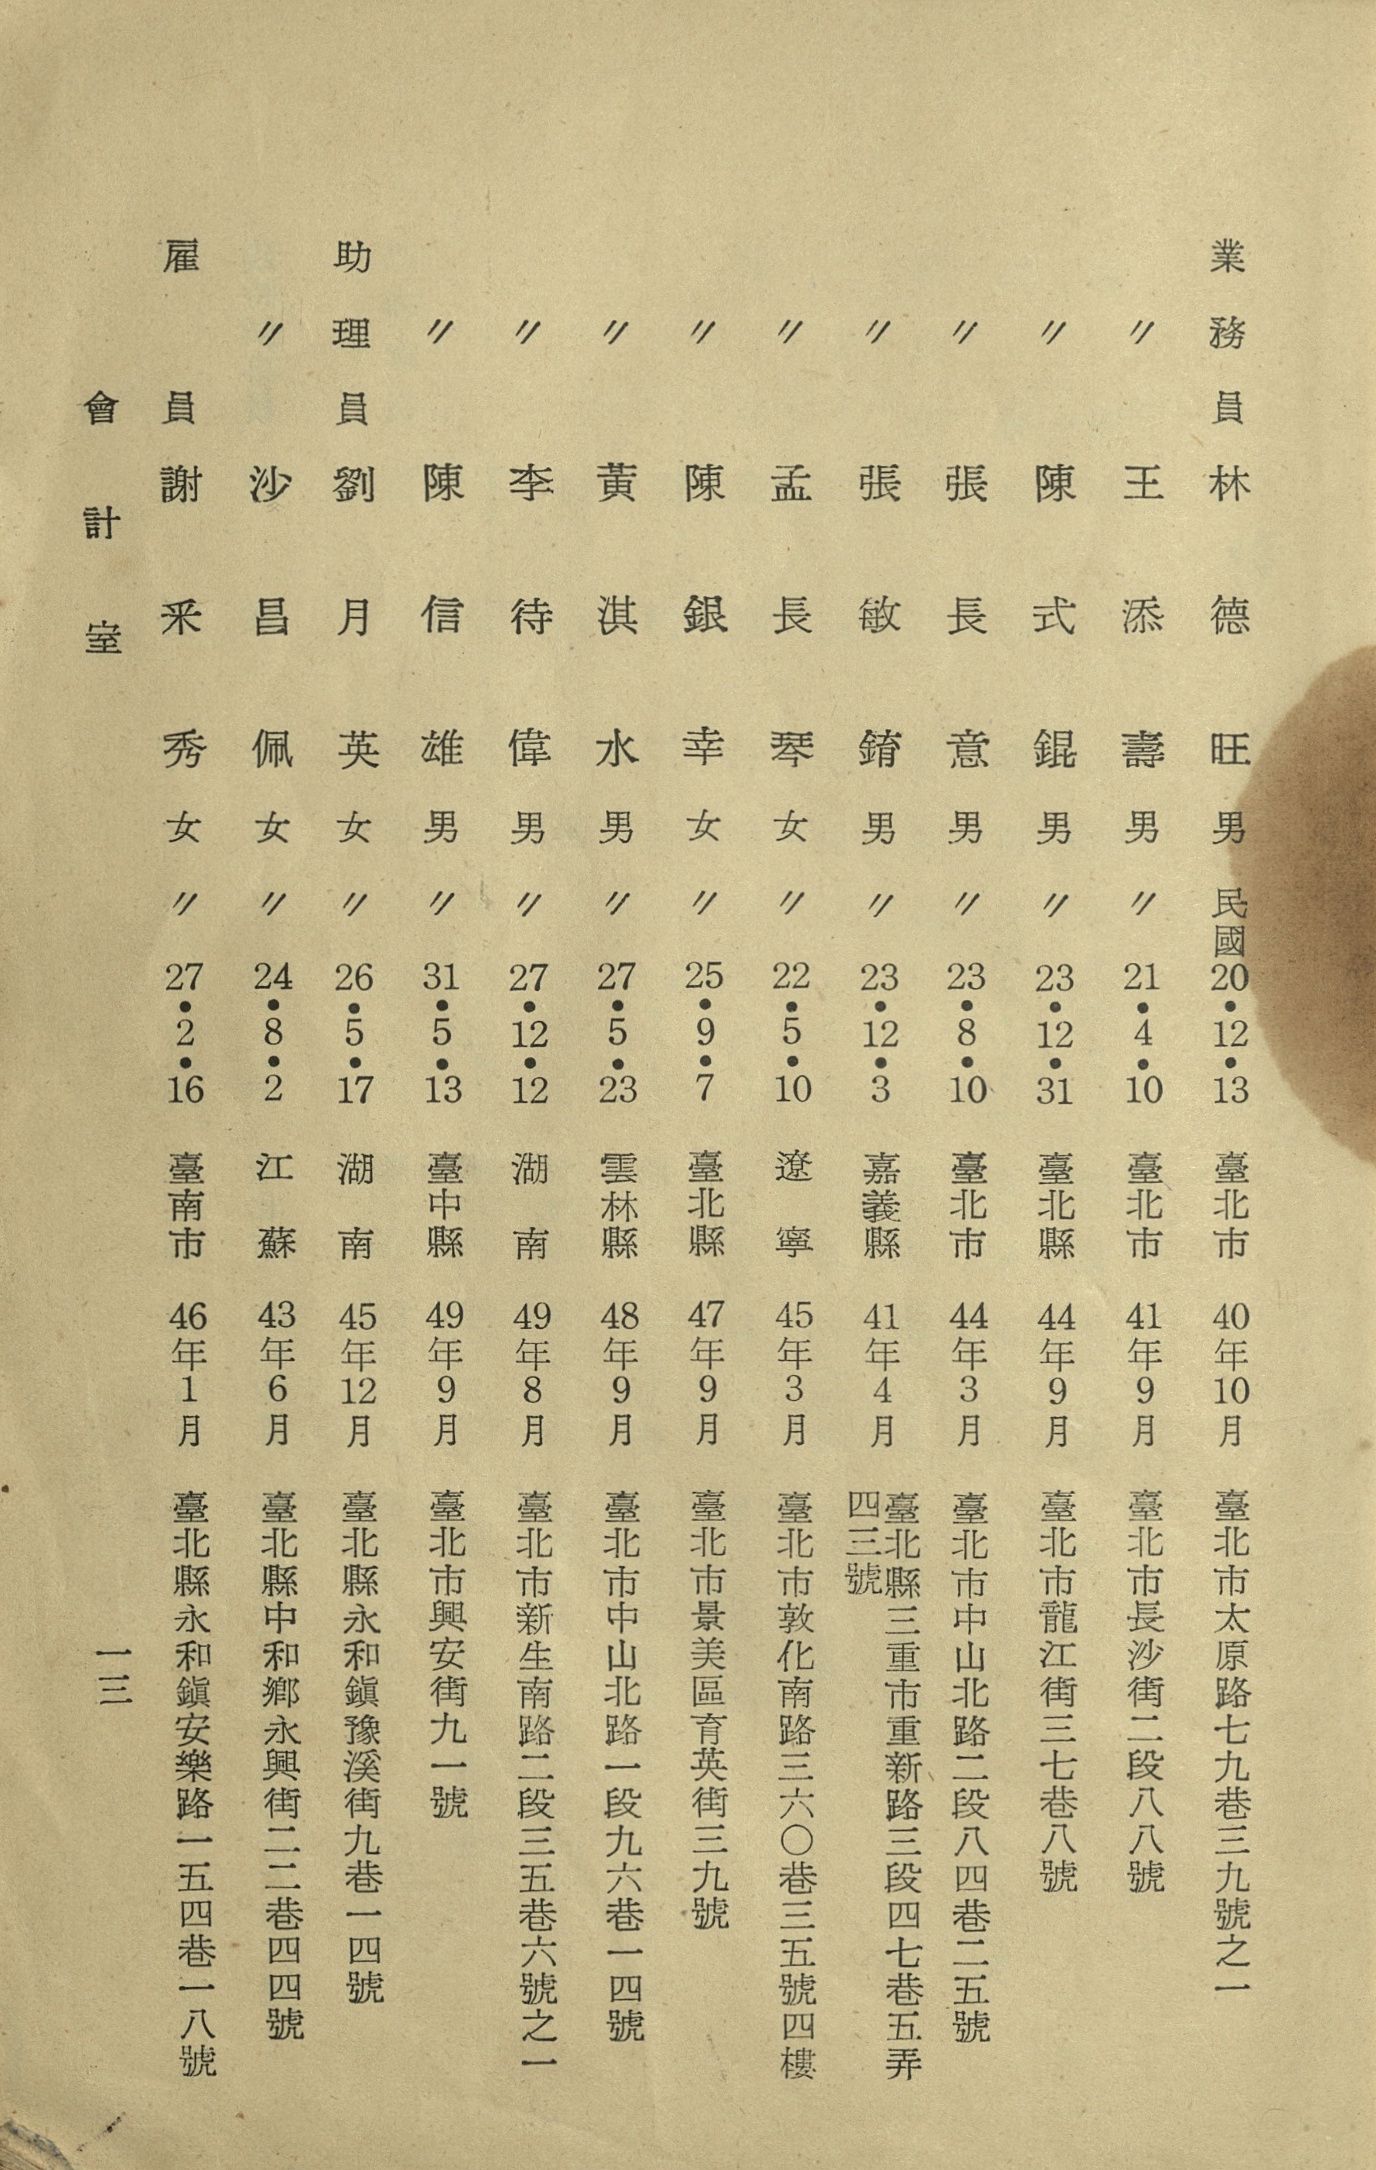 業務員 林德旺 男 民國20•12•13 臺北市 40年10月 臺北市太原路七九巷三九號之一
〃 王添壽 男 〃 21•4•10 臺北市 41年9月 臺北市長沙街二段八八號
〃 陳式錕 男 〃 23•12•31 臺北縣 44年9月 臺北市龍江街三七巷八號
〃 張長意 男 〃 23•8•10 臺北市 44年3月 臺北市中山北路二段八四巷二五號
〃 張敏錥 男 〃 23•12•3 嘉義縣 41年4月 臺北縣三重市重新路三段四七巷五弄
四三號
〃 孟長琴 女 〃 22•5•10 遼寧 45年3月 臺北市敦化南路三六〇巷三五號四樓
〃 陳銀幸 女 〃 25•9•7 臺北縣 47年9月 臺北市景美區育英街三九號
〃 黃淇水 男 〃 27•5•23 雲林縣 48年9月 臺北市中山北路一段九六巷一四號
〃 李待偉 男 〃 27•12•12 湖南 49年8月 臺北市新生南路二段三五巷六號之一
〃 陳信雄 男 〃 31•5•13 臺中縣 49年9月 臺北市興安街九一號
助理員 劉月英 女 〃 26•5•17 湖南 45年12月 臺北縣永和鎭豫溪街九巷一四號
〃 沙昌佩 女 〃 24•8•2 江蘇 43年6月 臺北縣中和鄉永興街二二巷四四號
雇員 謝釆秀 女 〃 27•2•16 臺南市 46年1月 臺北縣永和鎭安樂路一五四巷一八號
會計室
一三